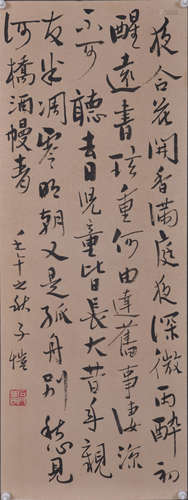 夜合花開香滿庭夜深微雨醉初
醒遠書珍重何由達舊事淒涼
不可聽去日兒童皆長大昔年親
友半凋零明朝又是孤舟別愁見
河橋酒幔青
壬午之秋子愷